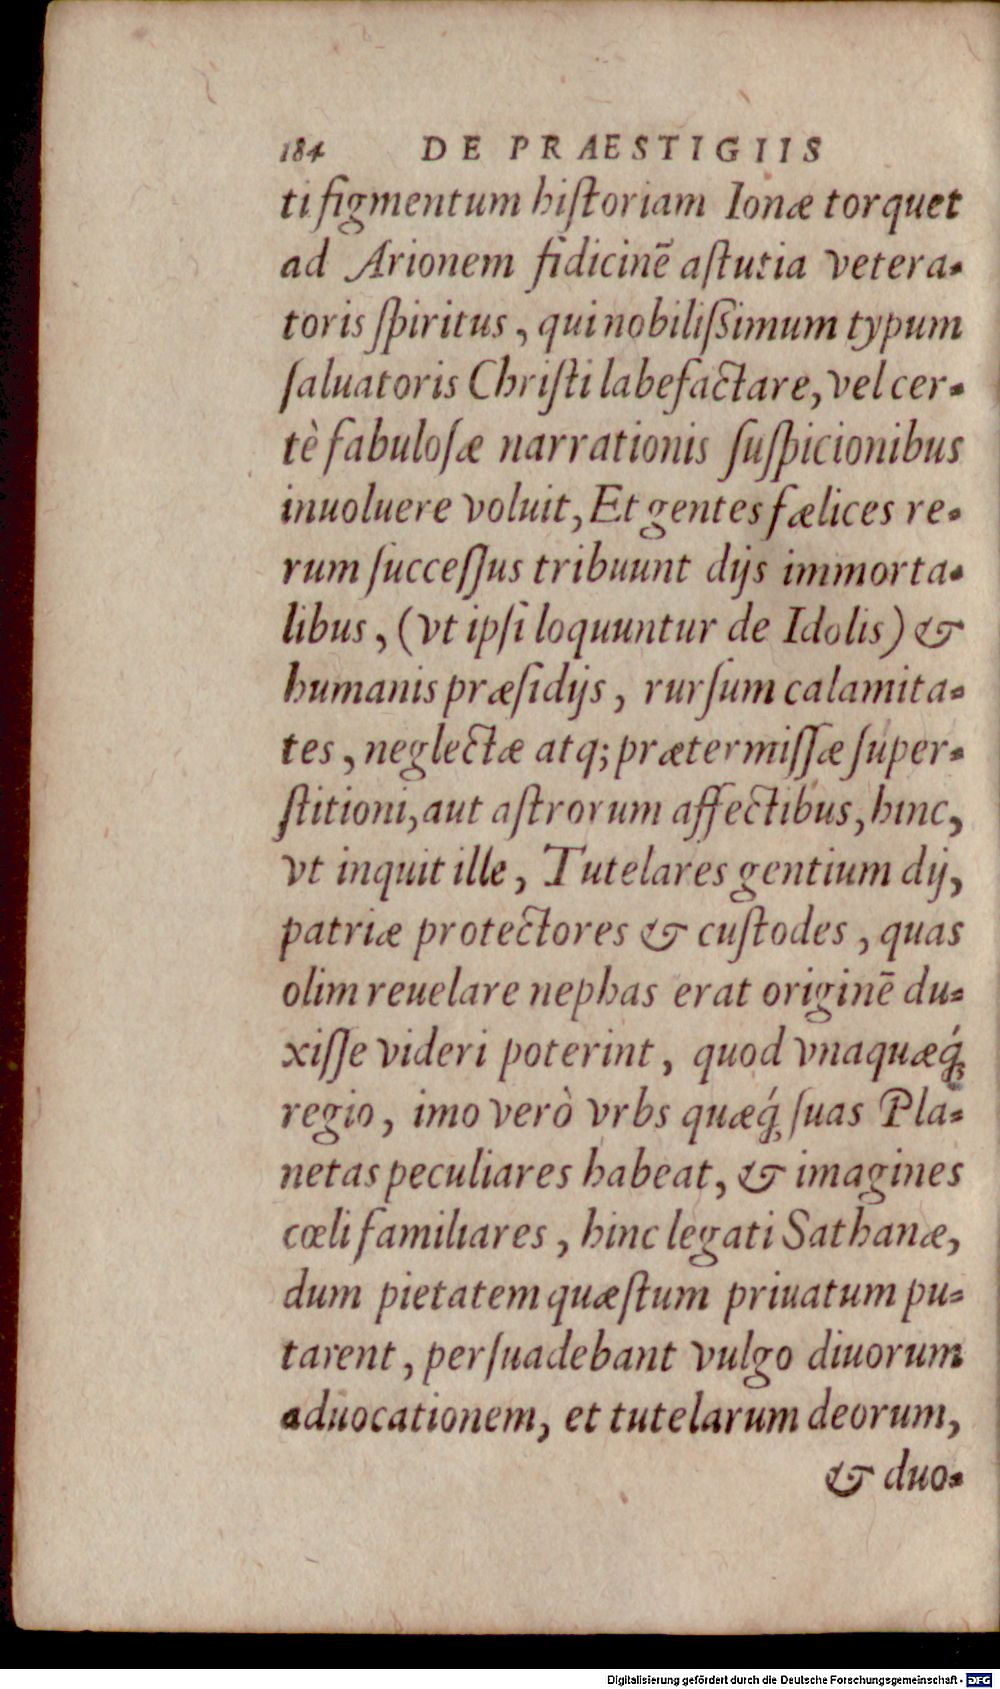 184 DE PRAESTIGIIS
ti figmentum hiſtoriam Ionæ torquet
ad Arionem fidicinē aſtutia vetera-
toris ſpiritus, qui nobiliſsimum typum
ſaluatoris Chriſti labefactare, vel cer-
tè fabuloſæ narrationis ſuſpicionibus
inuoluere voluit, Et gentes fælices re-
rum ſucceſſus tribuunt dijs immorta-
libus, (vt ipſi loquuntur de Idolis) &
humanis præſidijs, rurſum calamita-
tes, neglectæ atq; prætermiſſæ ſuper-
ſtitioni, aut aſtrorum affectibus, hinc,
vt inquit ille, Tutelares gentium dij,
patriæ protectores & cuſtodes, quas
olim reuelare nephas erat originē du-
xiſſe videri poterint, quod vnaquæq́;
regio, imo verò vrbs quæq́; ſuas Pla-
netas peculiares habeat, & imagines
cœli familiares, hinc legati Sathanæ,
dum pietatem quæſtum priuatum pu-
tarent, perſuadebant vulgo diuorum
aduocationem, et tutelarum deorum,
& duo-
Digitalisierung gefördert durch die Deutsche Forschungsgemeinschaft - DFG